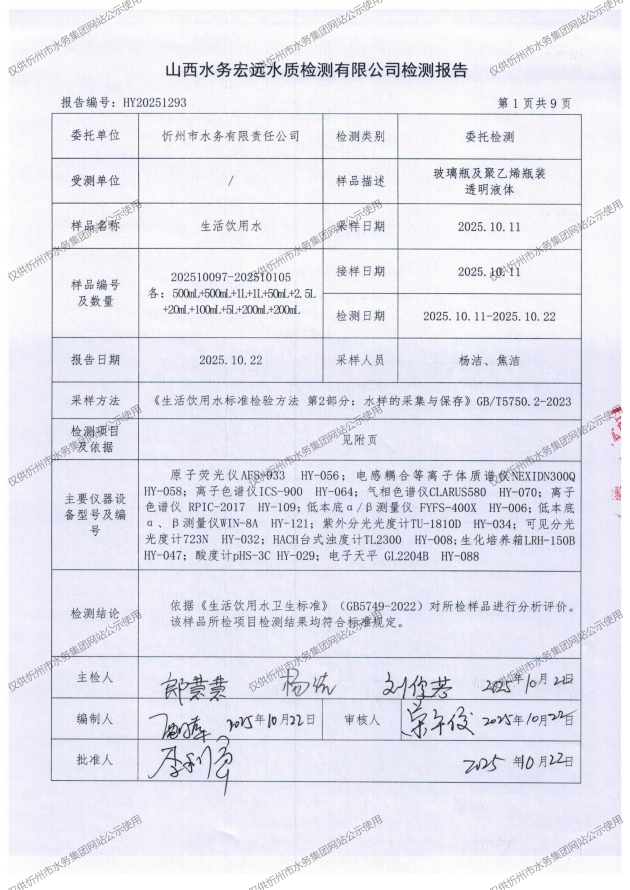 山西水务宏远水质检测有限公司检测报告
报告编号: HY20251293
第 1 页共 9 页
委托单位 忻州市水务有限责任公司 检测类别 委托检测
受测单位 / 样品描述 玻璃瓶及聚乙烯瓶装
透明液体
样品名称 生活饮用水 采样日期 2025.10.11
样品编号
及数量
202510097-202510105
各: 500mL+500mL+1L+1L+50mL+2.5L
+20mL+100mL+5L+200mL+200mL
接样日期 2025.10.11
检测日期 2025.10.11-2025.10.22
报告日期 2025.10.22 采样人员 杨洁、焦洁
采样方法 《生活饮用水标准检验方法 第2部分: 水样的采集与保存》GB/T5750.2-2023
检测项目
及依据
见附页
主要仪器设
备型号及编
号
原子荧光仪AFS-933 HY-056; 电感耦合等离子体质谱仪NEXIDN300Q
HY-058; 离子色谱仪ICS-900 HY-064; 气相色谱仪CLARUS580 HY-070; 离子
色谱仪 RPIC-2017 HY-109; 低本底α/β测量仪 FYFS-400X HY-006; 低本底
α、β测量仪WIN-8A HY-121; 紫外分光光度计TU-1810D HY-034; 可见分光
光度计723N HY-032; HACH台式浊度计TL2300 HY-008; 生化培养箱LRH-150B
HY-047; 酸度计pHS-3C HY-029; 电子天平 GL2204B HY-088
检测结论
依据《生活饮用水卫生标准》（GB5749-2022）对所检样品进行分析评价。
该样品所检项目检测结果均符合标准规定。
主检人 郎慧慧 2025年10月22日
编制人 2025年10月22日 审核人 2025年10月22日
批准人 2025年10月22日
仅供忻州市水务集团网站公示使用